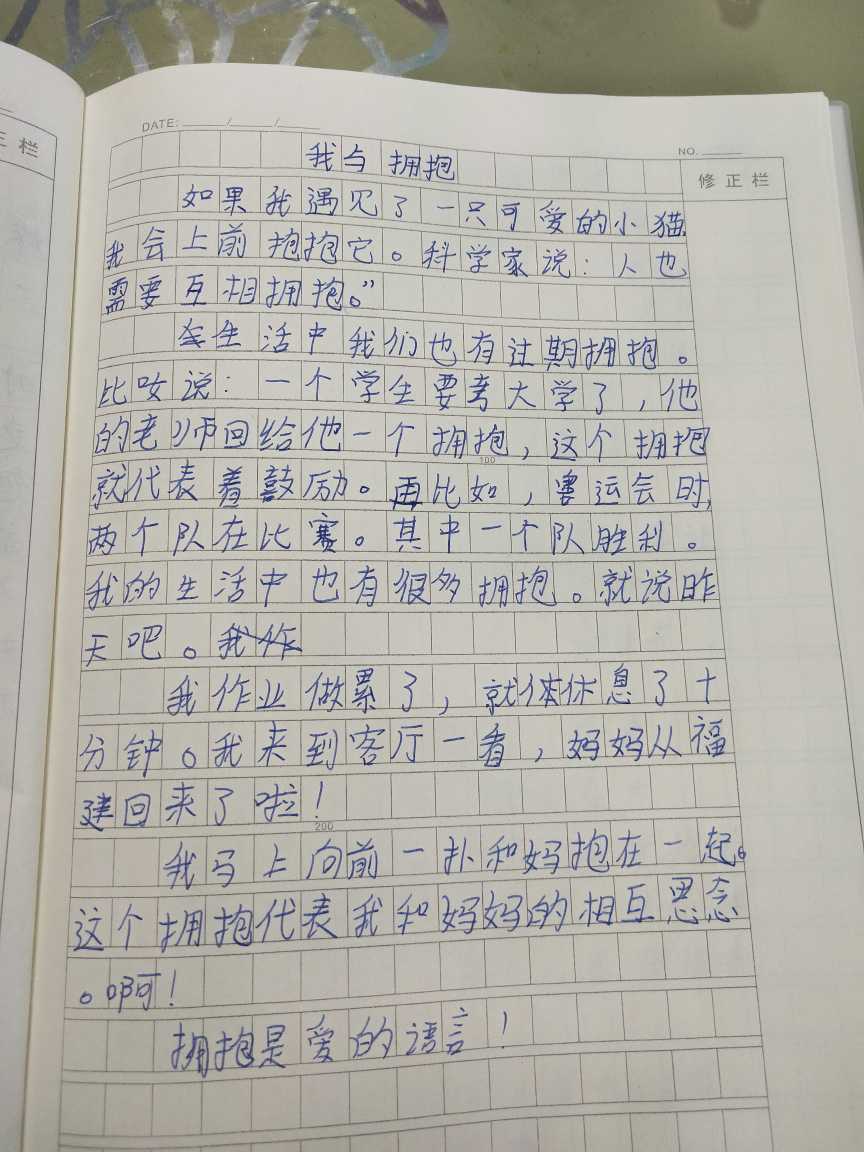 DATE: ____/____/____
NO. ____
正栏
修正栏
我与拥抱
如果我遇见了一只可爱的小猫
我会上前抱抱它。科学家说：人也
需要互相拥抱。”
在生活中我们也有过期拥抱。
比如说：一个学生要考大学了，他
的老师回给他一个拥抱，这个拥抱
100
就代表着鼓励。再比如，奥运会时，
两个队在比赛。其中一个队胜利。
我的生活中也有很多拥抱。就说昨
天吧。我作
我作业做累了，就体休息了十
分钟。我来到客厅一看，妈妈从福
建回来了啦！
200
我马上向前一扑和妈抱在一起。
这个拥抱代表我和妈妈的相互思念
。啊！
拥抱是爱的语言！